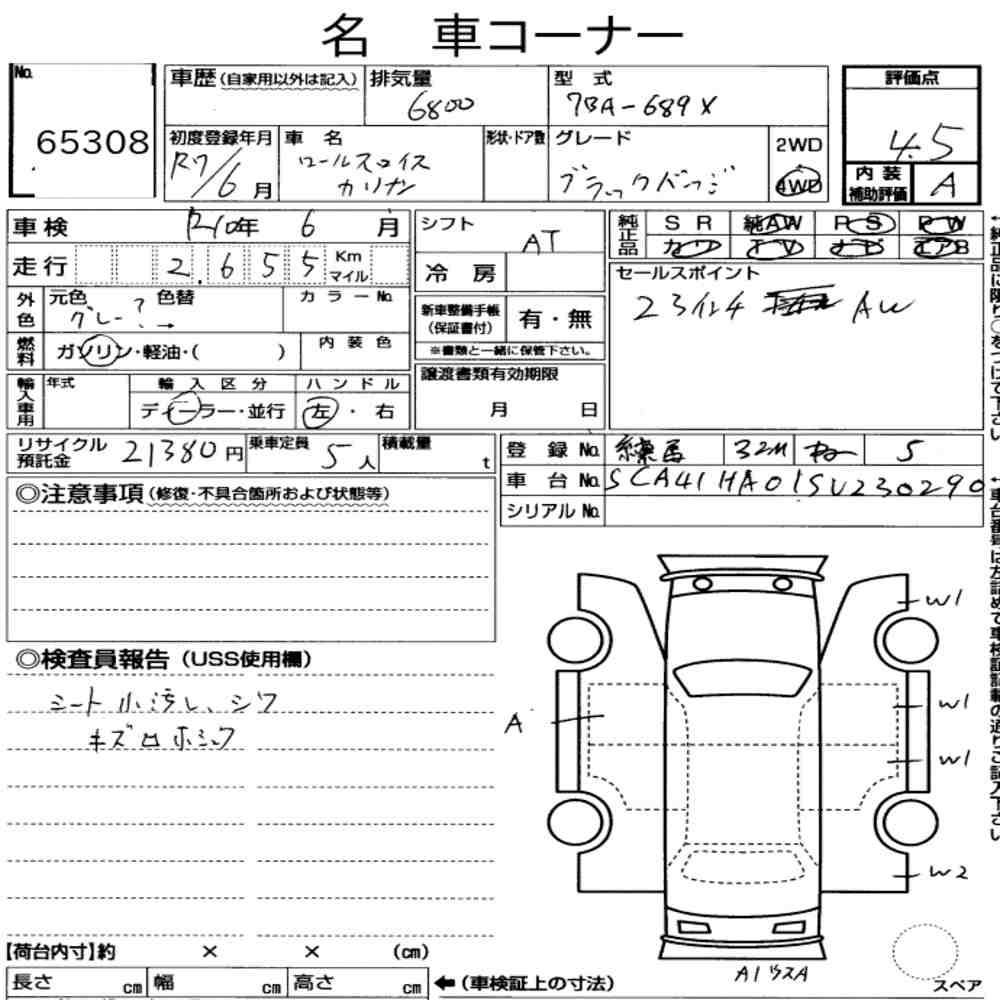 名 車コーナー
No. 65308
車歴 (自家用以外は記入)
排気量 6800
型式 7BA-689X
評価点 4.5
初度登録年月 R7/6月
車名 ロールスロイス カリナン
形状・ドア数
グレード ブラックバッジ
2WD
4WD
内装補助評価 A
車検 R10年 6月
シフト AT
純正品 SR 純AW PS PW
カワ TV ナビ エアB
走行 2,655 Km マイル
冷房
セールスポイント
23インチ AW
外色 元色 グレー ? 色替 → カラーNo.
新車整備手帳(保証書付) 有・無
※書類と一緒に保管下さい。
燃料 ガソリン・軽油・( )
内装色
輸入車用 年式 輸入区分 ディーラー・並行
ハンドル 左・右
譲渡書類有効期限
月 日
リサイクル預託金 21380円
乗車定員 5人
積載量 t
登録No. 練馬 32M 5
車台No. SCA41HA01SU230290
シリアルNo.
◎注意事項 (修復・不具合箇所および状態等)
◎検査員報告 (USS使用欄)
シート小汚レ、シワ
キズ
W1
A
W1
W1
W2
【荷台内寸】約 × × (cm)
長さ cm 幅 cm 高さ cm
←(車検証上の寸法)
A1
スペア
↑純正品に限り○をつけて下さい
↑車台番号は左詰めで車検証記載の通りご記入下さい